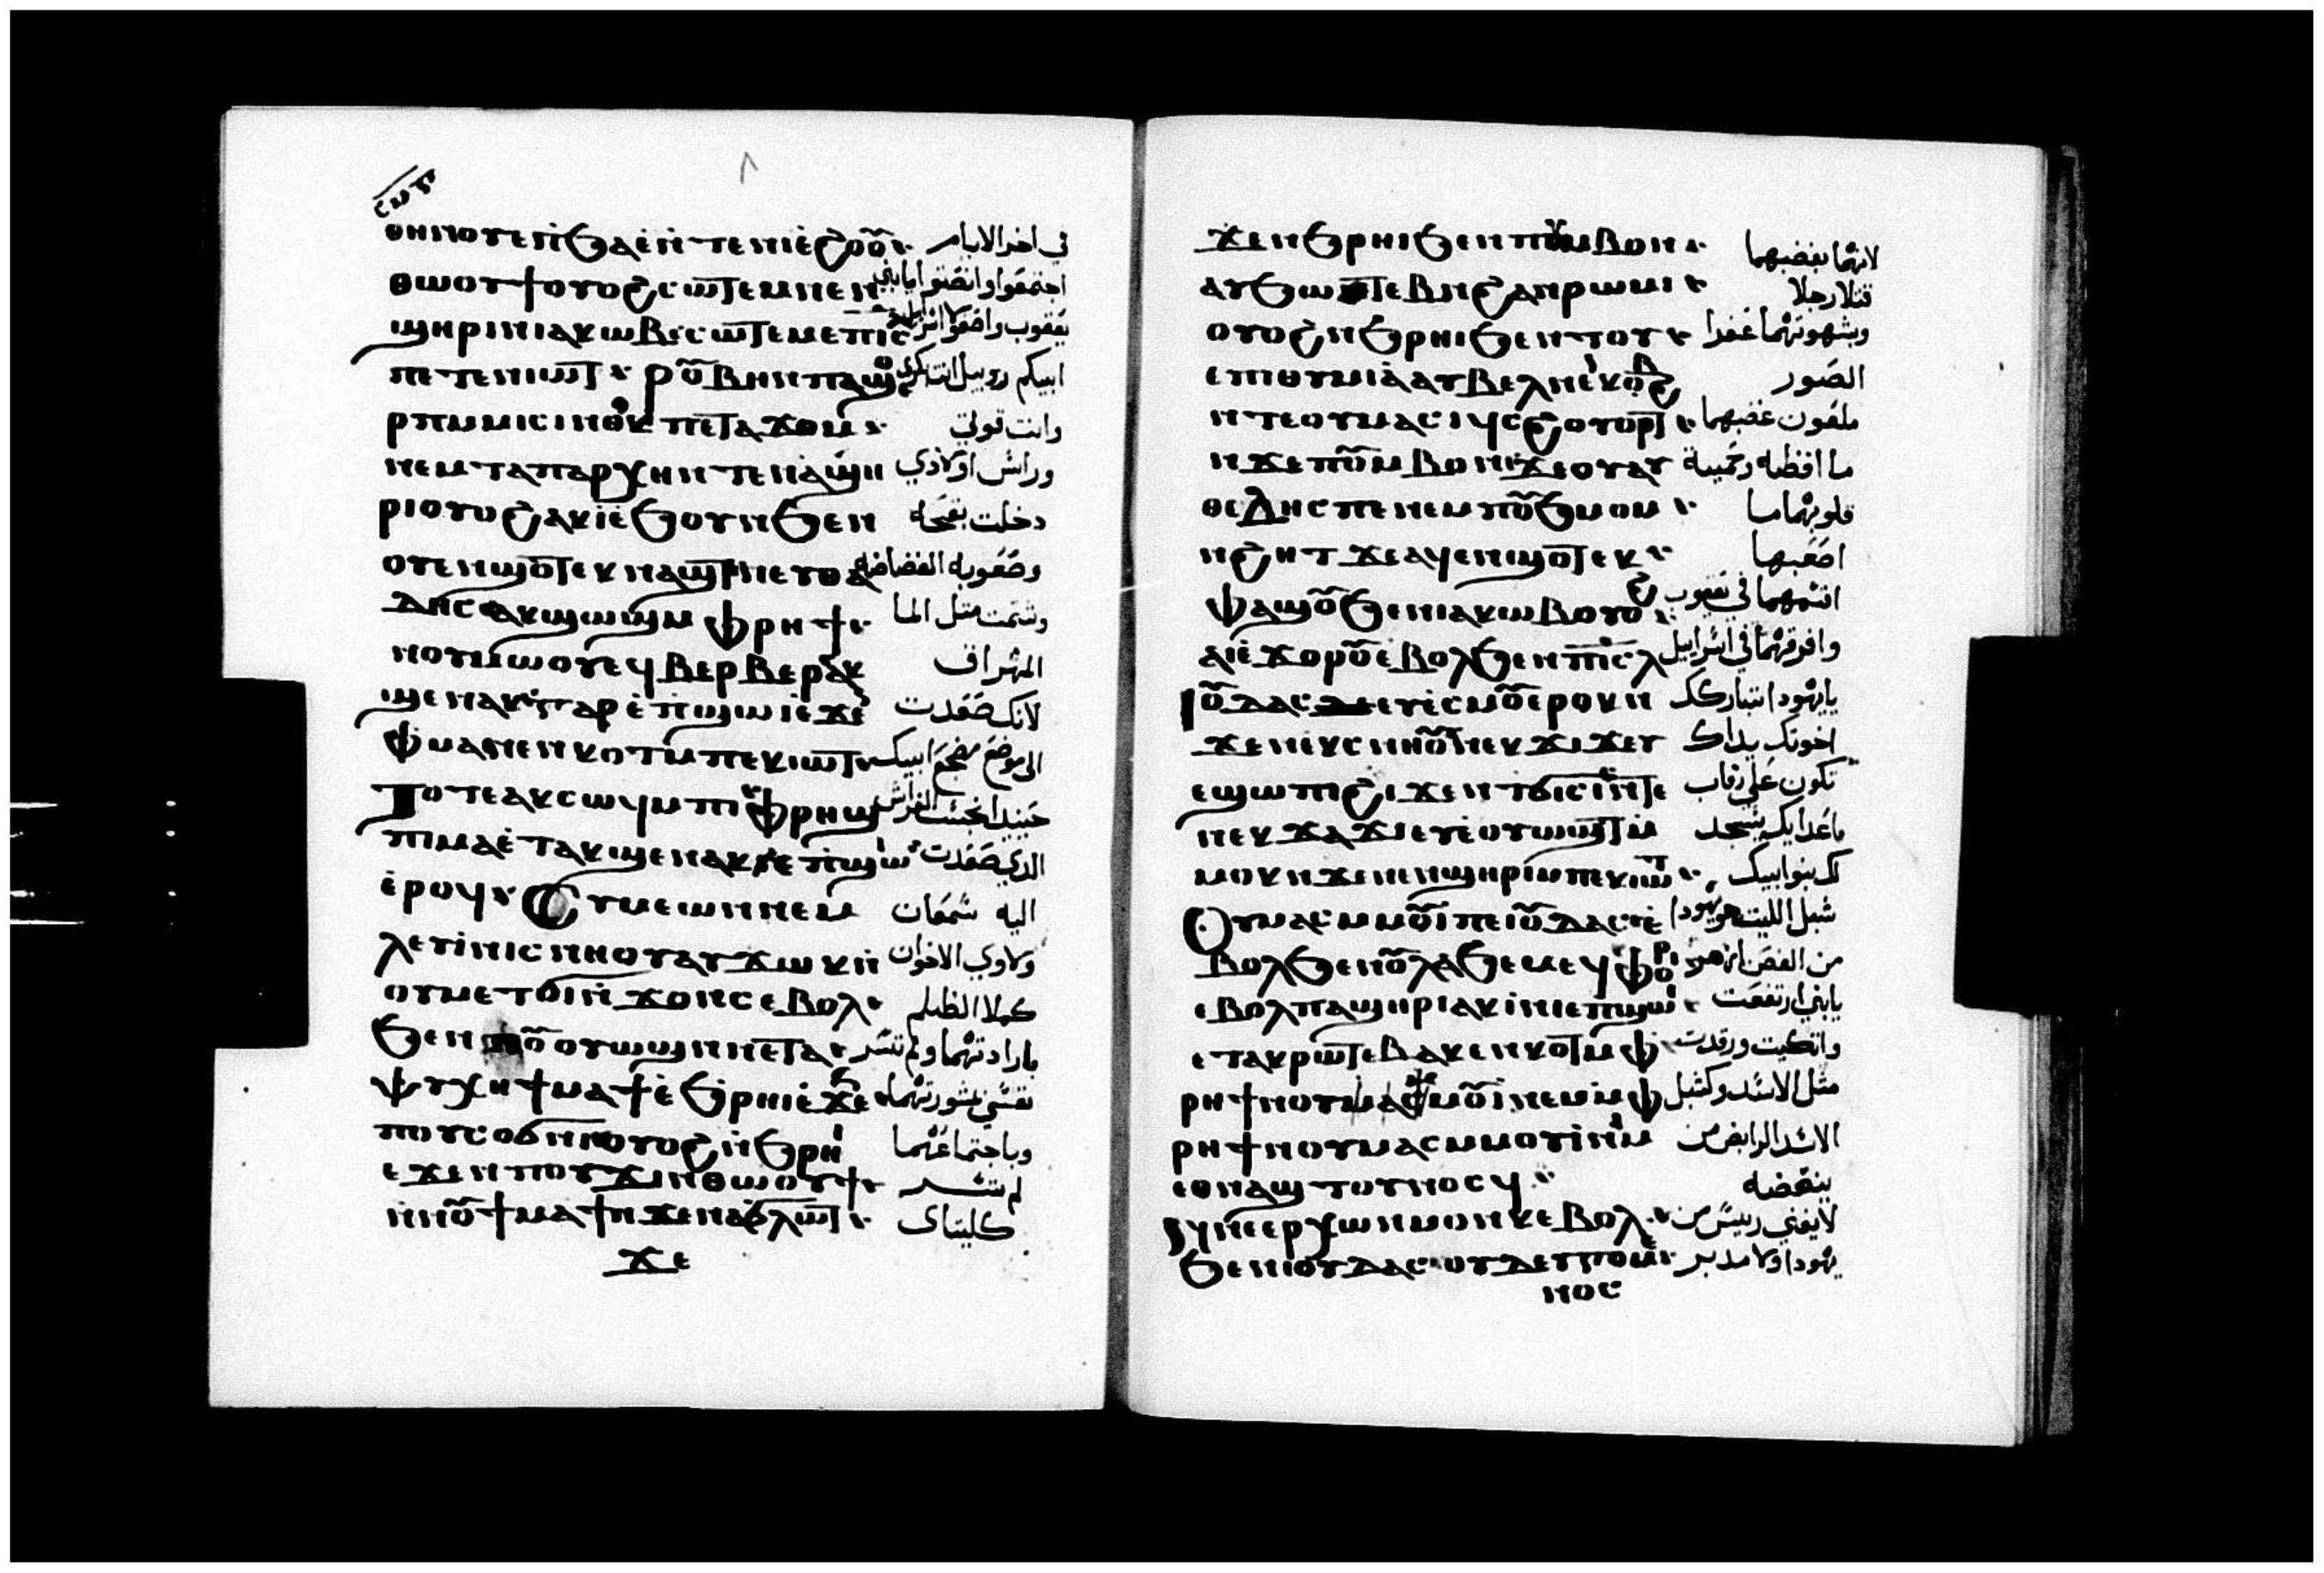 ⲑⲏⲛⲟⲩ ⲉⲡ̀ϧⲁⲉ̀ ⲛ̀ⲧⲉ ⲛⲓⲉ̀ϩⲟⲟⲩ في اخر الايام
ⲑⲱⲟⲩϯ ⲟⲩⲟϩ ⲥⲱⲧⲉⲙ ⲛⲉⲛ اجتمعوا وانصتوا يا بني
ϣⲏⲣⲓ ⲛ̀ⲓⲁⲕⲱⲃ ⲥⲱⲧⲉⲙ ⲉⲡⲓⲥ̅ⲗ̅ يعقوب واصغوا
ⲡⲉⲧⲉⲛⲓⲱⲧ ⲣⲟⲩⲃⲏⲛ ⲡⲁϣⲟ ابيكم روبيل انت بكري
ⲣⲡⲙ̀ⲙⲓⲥⲓ ⲛ̀ⲑⲟⲕ ⲡⲉ ⲧⲁϫⲟⲙ وانت قوتي
ⲛⲉⲙ ⲧⲁⲡⲁⲣⲭⲏ ⲛ̀ⲧⲉ ⲛⲁϣⲏ وراس اولادي
ⲣⲓ ⲟⲩⲟϩ ⲁⲕⲓ̀ ⲉ̀ϧⲟⲩⲛ ϧⲉⲛ دخلت بقحه
ⲟⲩⲉⲛϣⲟⲧ ⲉⲕⲛⲁϣⲧ ⲛⲉⲩⲑⲁ وصعوبه الفضاضه
ⲇⲏⲥ ⲁⲕϣⲱϣ ⲙ̀ⲫⲣⲏϯ وشتمت مثل الما
ⲛ̀ⲟⲩⲙⲱⲟⲩ ⲉϥⲃⲉⲣⲃⲉⲣ ⲁⲕ المهراق
ϣⲉⲛⲁⲕ ⲅⲁⲣ ⲉ̀ⲡ̀ϣⲱⲓ ⲉϫⲉ لانك صعدت
ⲫ̀ⲙⲁⲛ̀ⲉⲛⲕⲟⲧ ⲙ̀ⲡⲉⲕⲓⲱⲧ الى موضع مضجع ابيك
ⲧⲟⲧⲉ ⲁⲕⲥⲱϥ ⲙ̀ⲡⲓⲫⲣⲏϣ حينيد انجست الفراش
ⲡⲓⲙⲁ ⲉ̀ⲧⲁⲕϣⲉⲛⲁⲕ ⲉ̀ⲡ̀ϣⲱⲓ الدي صعدت
ⲉ̀ⲣⲟϥ Ⲥⲩⲙⲉⲱⲛ ⲛⲉⲙ اليه شمعان
ⲗⲉⲩⲓ ⲛⲓⲥⲛⲏⲟⲩ ⲁⲩϫⲱⲕ ⲛ̀ ولاوي الاخوان
ⲟⲩⲙⲉⲧϭⲓⲛ̀ϫⲟⲛⲥ ⲉⲃⲟⲗ كملا الظلم
ϧⲉⲛ ⲡⲟⲩⲟⲩⲱϣ ⲛ̀ⲛⲉ ⲧⲁ بارادتهما ولم تسر
ⲯⲩⲭⲏ ϯⲙⲁϯ ⲉ̀ϧⲣⲏⲓ ⲉ̀ϫⲉⲛ نفسي بمشورتهما
ⲡⲟⲩⲥⲟϭⲛⲓ ⲟⲩⲟϩ ⲛ̀ϧⲣⲏⲓ وباجتماعهما
ⲉϫⲉⲛ ⲡⲟⲩϫⲓⲛⲑⲱⲟⲩϯ لم تسر
ⲛ̀ⲛⲟⲩϯⲙⲁϯ ⲛ̀ϫⲉ ⲛⲁϭⲗⲱⲧ كليتاى
ϫⲉ
ϫⲉ ⲛ̀ϧⲣⲏⲓ ϧⲉⲛ ⲡⲟⲩⲙⲃⲟⲛ لانهما بغضبهما
ⲁⲩϧⲱⲧⲉⲃ ⲛ̀ϩⲁⲛⲣⲱⲙⲓ قتلا رجلا
ⲟⲩⲟϩ ⲛ̀ϧⲣⲏⲓ ϧⲉⲛ ⲧⲟⲩ وبشهوتهما
ⲉⲡⲓⲑⲩⲙⲓⲁ̀ ⲁⲩⲃⲉⲗ ⲛ̀ⲉⲛⲕⲟϩ الصور
ⲛ̀ⲧⲉ ⲟⲩⲙⲁⲥⲓ ϥⲥϩⲟⲩⲟⲣⲧ ملعون غضبهما
ⲛ̀ϫⲉ ⲡⲟⲩⲙⲃⲟⲛ ϫⲉ ⲟⲩⲁⲩ ما افظه وحمية
ⲑⲉⲇⲏⲥ ⲡⲉ ⲛⲉⲙ ⲡⲟⲩϧⲙⲟⲙ قلوبهما ما
ⲛ̀ϩⲏⲧ ϫⲉ ⲁϥⲉⲛϣⲟⲧ اصعبها
ⲫⲁϣⲟⲩ ϧⲉⲛ ⲓⲁⲕⲱⲃ ⲟⲩⲟϩ اقسمهما في يعقوب
ⲁⲓⲉ̀ϫⲟⲣⲟⲩ ⲉⲃⲟⲗ ϧⲉⲛ ⲡⲓⲥ̅ⲗ̅ وافرقهما في اسراييل
Ⲓⲟⲩⲇⲁⲥ ⲉⲩⲉ̀ⲥⲙⲟⲩ ⲉⲣⲟⲕ ⲛ̀ يا يهودا تباركك
ϫⲉ ⲛⲉⲕⲥⲛⲏⲟⲩ ⲛⲉⲕϫⲓϫ ⲉⲩ اخوتك يداك
ⲉϣⲱⲡⲓ ϩⲓϫⲉⲛ ⲧϭⲓⲥⲓ ⲛ̀ⲧⲉ تكون على رقاب
ⲛⲉⲕϫⲁϫⲓ ⲉⲩⲉ̀ⲟⲩⲱϣⲧ ⲙ̀ باعدايك يسجد
ⲙⲟⲕ ⲛ̀ϫⲉ ⲛⲉⲛϣⲏⲣⲓ ⲙ̀ⲡⲉⲕⲓⲱⲧ لك بنوا ابيك
Ⲟⲩⲙⲁⲥ ⲙ̀ⲙⲟⲩⲓ ⲡⲉ ⲓⲟⲩⲇⲁⲥ ⲉ̀ شبل الليث هو يهودا
ⲃⲟⲗ ϧⲉⲛ من الغصن
ⲉⲃⲟⲗ ⲡⲁϣⲏⲣⲓ ⲁⲕⲓ̀ ⲛⲓ ⲉⲡ̀ϣⲱⲓ يا بني ارتفعت
ⲉⲧⲁⲕⲣⲱⲧⲉⲃ ⲁⲕⲉⲛⲕⲟⲧ ⲙ̀ⲫ واتكيت ورقدت
ⲣⲏϯ ⲛ̀ⲟⲩⲙⲟⲩⲓ ⲛⲉⲙ ⲙ̀ⲫ مثل الاسد وكشبل
ⲣⲏϯ ⲛ̀ⲟⲩⲙⲁⲥ ⲙ̀ⲙⲟⲩⲓ ⲛⲓⲙ الاسد الرابض من
ⲉⲑⲛⲁϣⲧⲟⲩⲛⲟⲥϥ ينهضه
ⲉⲣⲭⲱⲛ ⲙⲟⲩⲛⲕ ⲉⲃⲟⲗ لا يفنى رييس من
ϧⲉⲛ ⲓⲟⲩⲇⲁⲥ ⲟⲩⲇⲉ ⲅⲟⲩⲙⲉ يهودا ولا مدبر
ⲛⲟⲥ